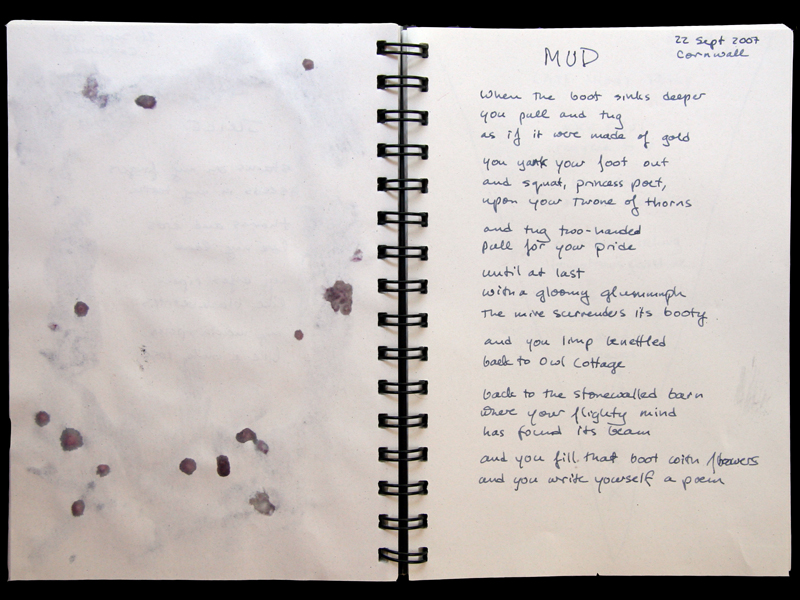 MUD
22 Sept 2007
Cornwall
When the boot sinks deeper
you pull and tug
as if it were made of gold
you yank your foot out
and squat, princess poet,
upon your Throne of thorns
and tug two-handed
pull for your pride
until at last
with a gloomy glummmph
the mire surrenders its booty
and you limp benettled
back to Owl Cottage
back to the stonewalled barn
where your flighty mind
has found its beam
and you fill that boot with flowers
and you write yourself a poem